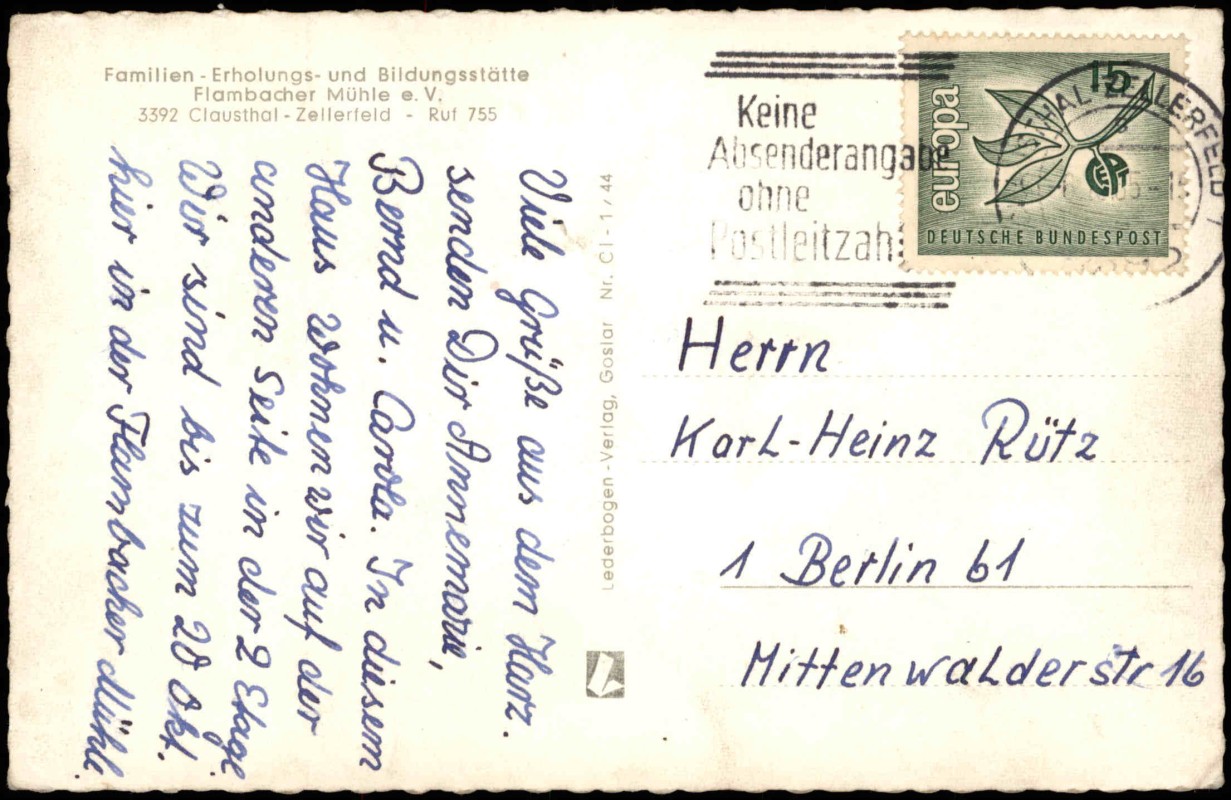 Familien - Erholungs- und Bildungsstätte
Flambacher Mühle e. V.
3392 Clausthal - Zellerfeld - Ruf 755
Viele Grüße aus dem Harz.
senden Dir Annemarie,
Bernd u. Carola. In diesem
Haus wohnen wir auf der
anderen Seite in der 2 Etage.
Wir sind bis zum 20 Okt.
hier in der Flambacher Mühle.
Lederbogen - Verlag, Goslar Nr. Cl - 1 / 44
Keine
Absenderangabe
ohne
Postleitzahl
15
europa
DEUTSCHE BUNDESPOST
Herrn
Karl-Heinz Rütz
1 Berlin 61
Mittenwalderstr 16